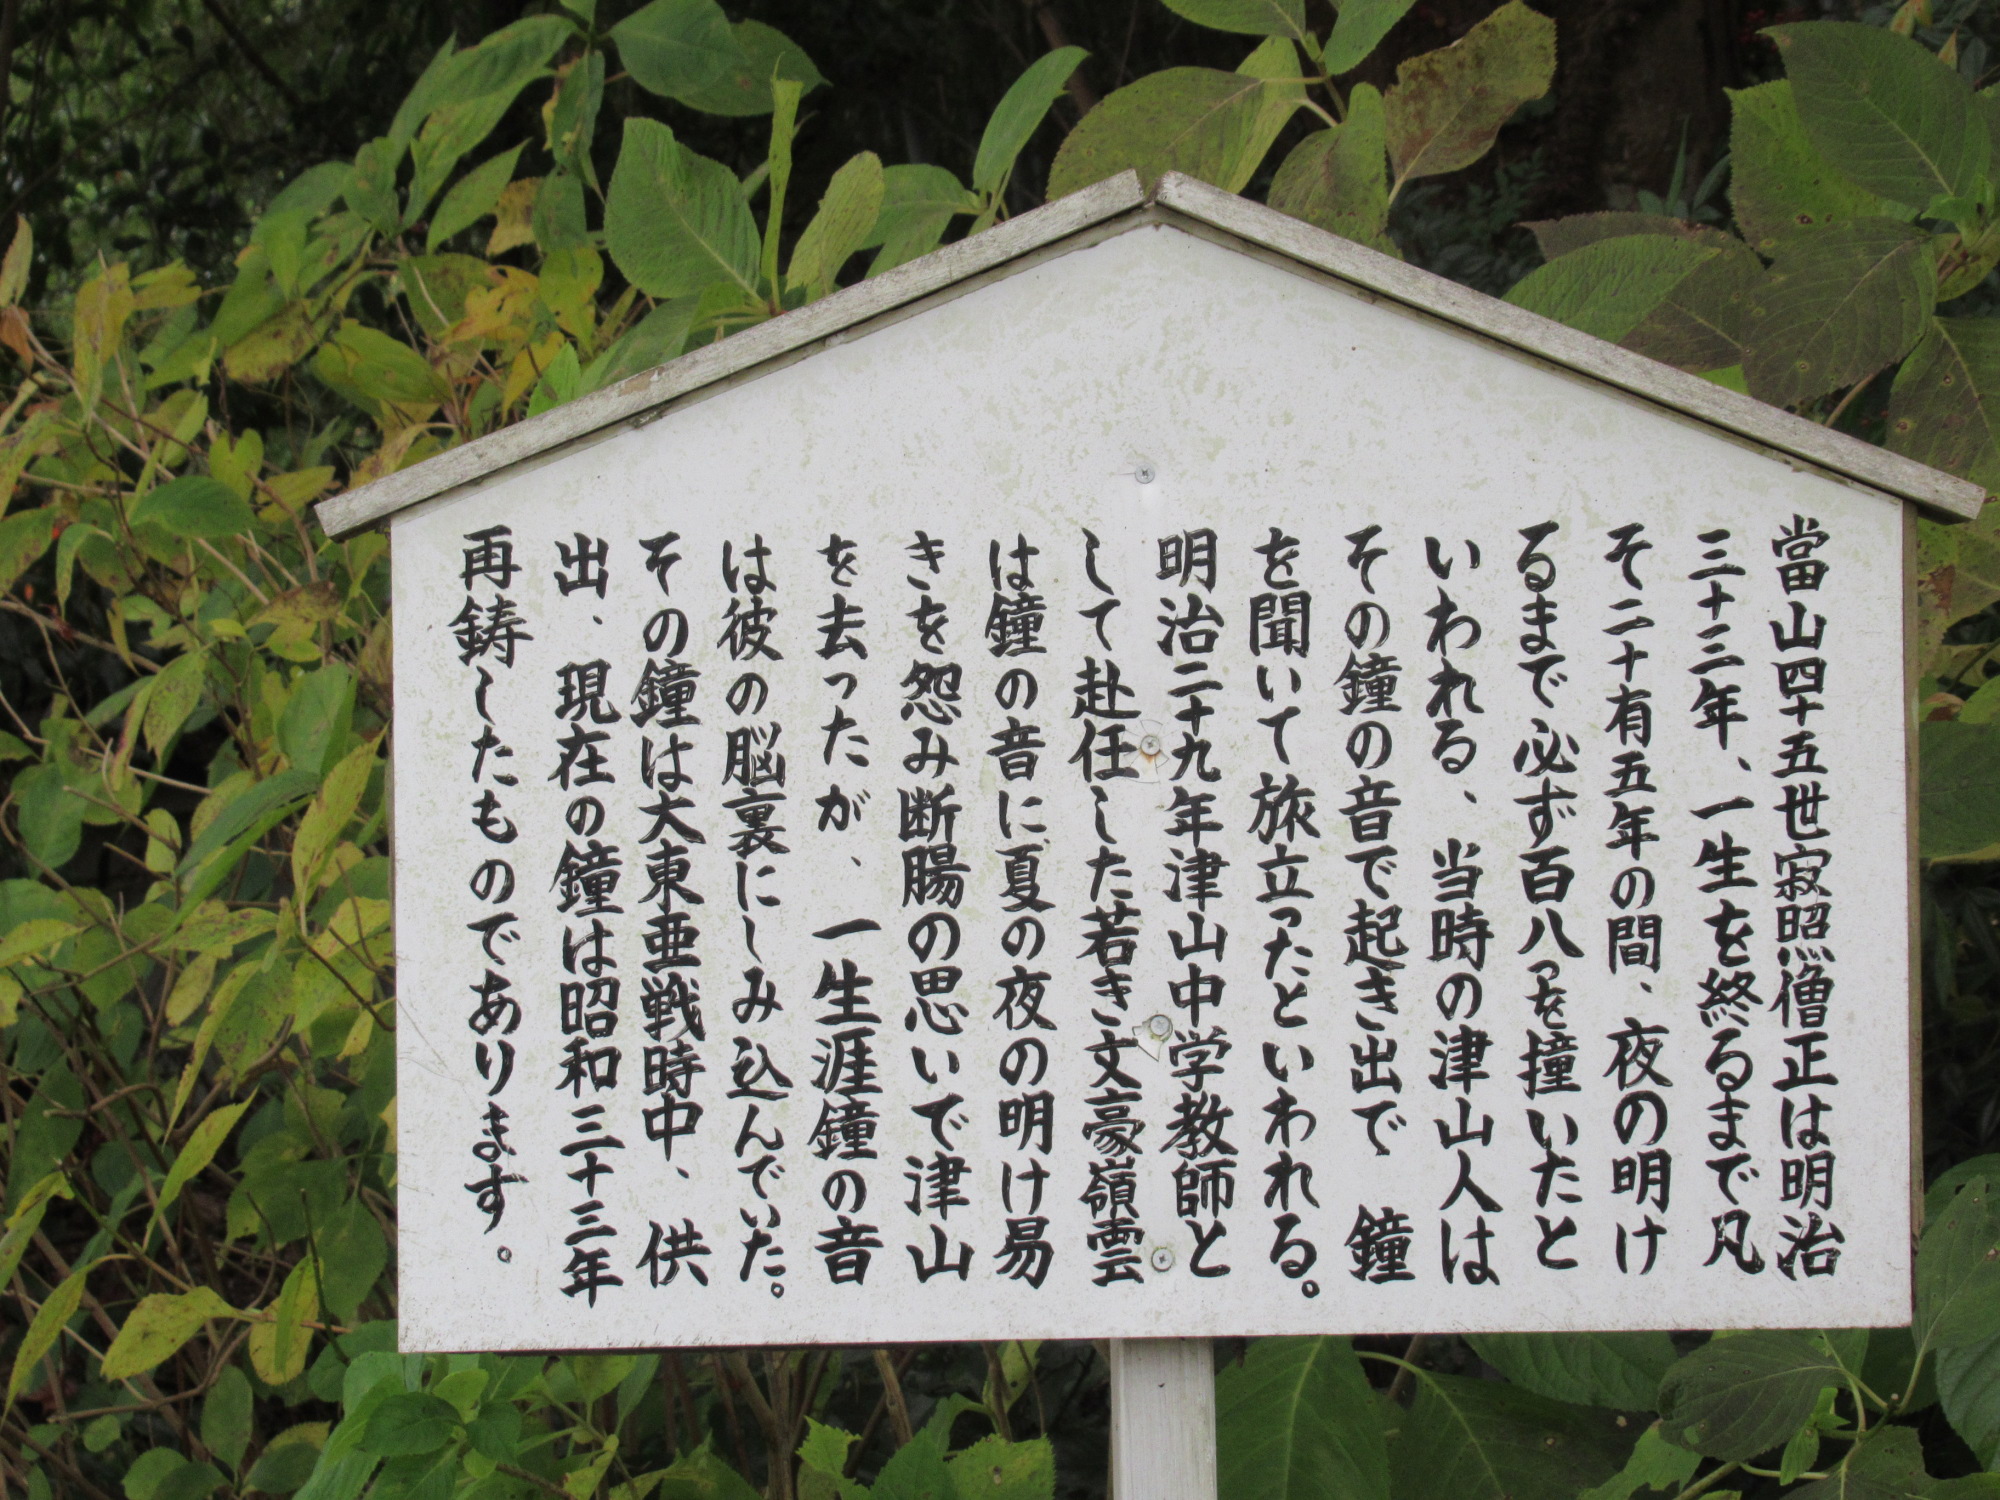 當山四十五世寂照僧正は明治
三十三年、一生を終るまで凡
そ二十有五年の間、夜の明け
るまで必ず百八つを撞いたと
いわれる、当時の津山人は
その鐘の音で起き出で 鐘
を聞いて旅立ったといわれる。
明治二十九年津山中学教師と
して赴任した若き文豪嶺雲
は鐘の音に夏の夜の明け易
きを怨み断腸の思いで津山
を去ったが、一生涯鐘の音
は彼の脳裏にしみ込んでいた。
その鐘は大東亜戦時中、供
出、現在の鐘は昭和三十三年
再鋳したものであります。